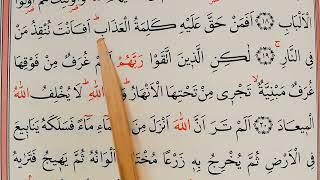 الْاَلْبَابِ ﴿١٨﴾ اَفَمَنْ حَقَّ عَلَيْهِ كَلِمَةُ الْعَذَابِ اَفَاَنْتَ تُنْقِذُ مَنْ
فِي النَّارِ ﴿١٩﴾ لٰكِنِ الَّذِينَ اتَّقَوْا رَبَّهُمْ لَهُمْ غُرَفٌ مِنْ فَوْقِهَا
غُرَفٌ مَبْنِيَّةٌ تَجْرِى مِنْ تَحْتِهَا الْاَنْهَارُ وَعْدَ اللّٰهِ لَا يُخْلِفُ اللّٰهُ
الْمِيعَادَ ﴿٢٠﴾ اَلَمْ تَرَ اَنَّ اللّٰهَ اَنْزَلَ مِنَ السَّمَاءِ مَاءً فَسَلَكَهُ يَنَابِيعَ
فِي الْاَرْضِ ثُمَّ يُخْرِجُ بِهِ زَرْعًا مُخْتَلِفًا اَلْوَانُهُ ثُمَّ يَهِيجُ فَتَرٰيهُ